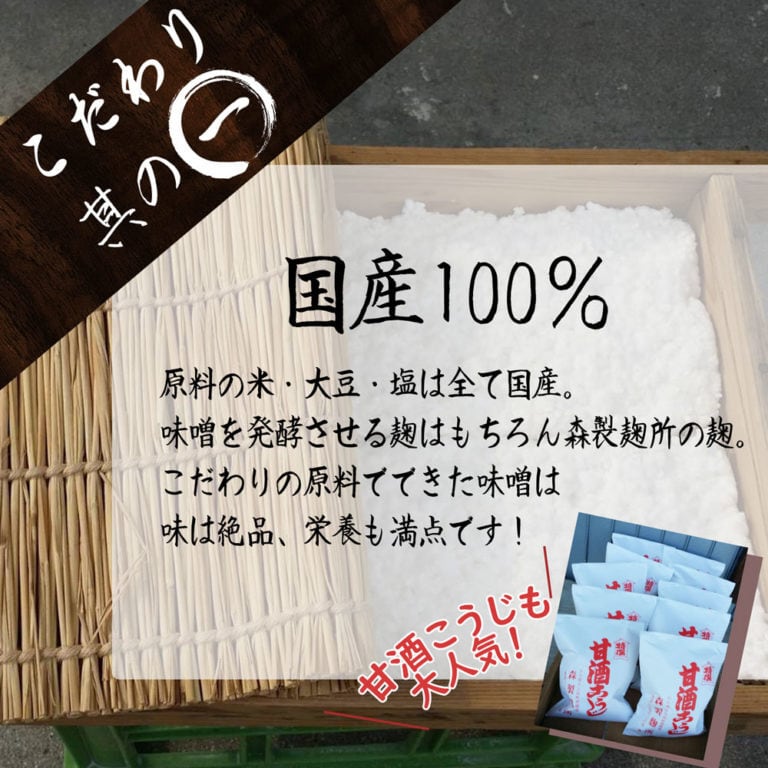 こだわり
其の一
国産100%
原料の米・大豆・塩は全て国産。
味噌を発酵させる麹はもちろん森製麹所の麹。
こだわりの原料でできた味噌は
味は絶品、栄養も満点です!
甘酒こうじも
大人気!
特撰
甘酒こうじ
特撰
甘酒こうじ